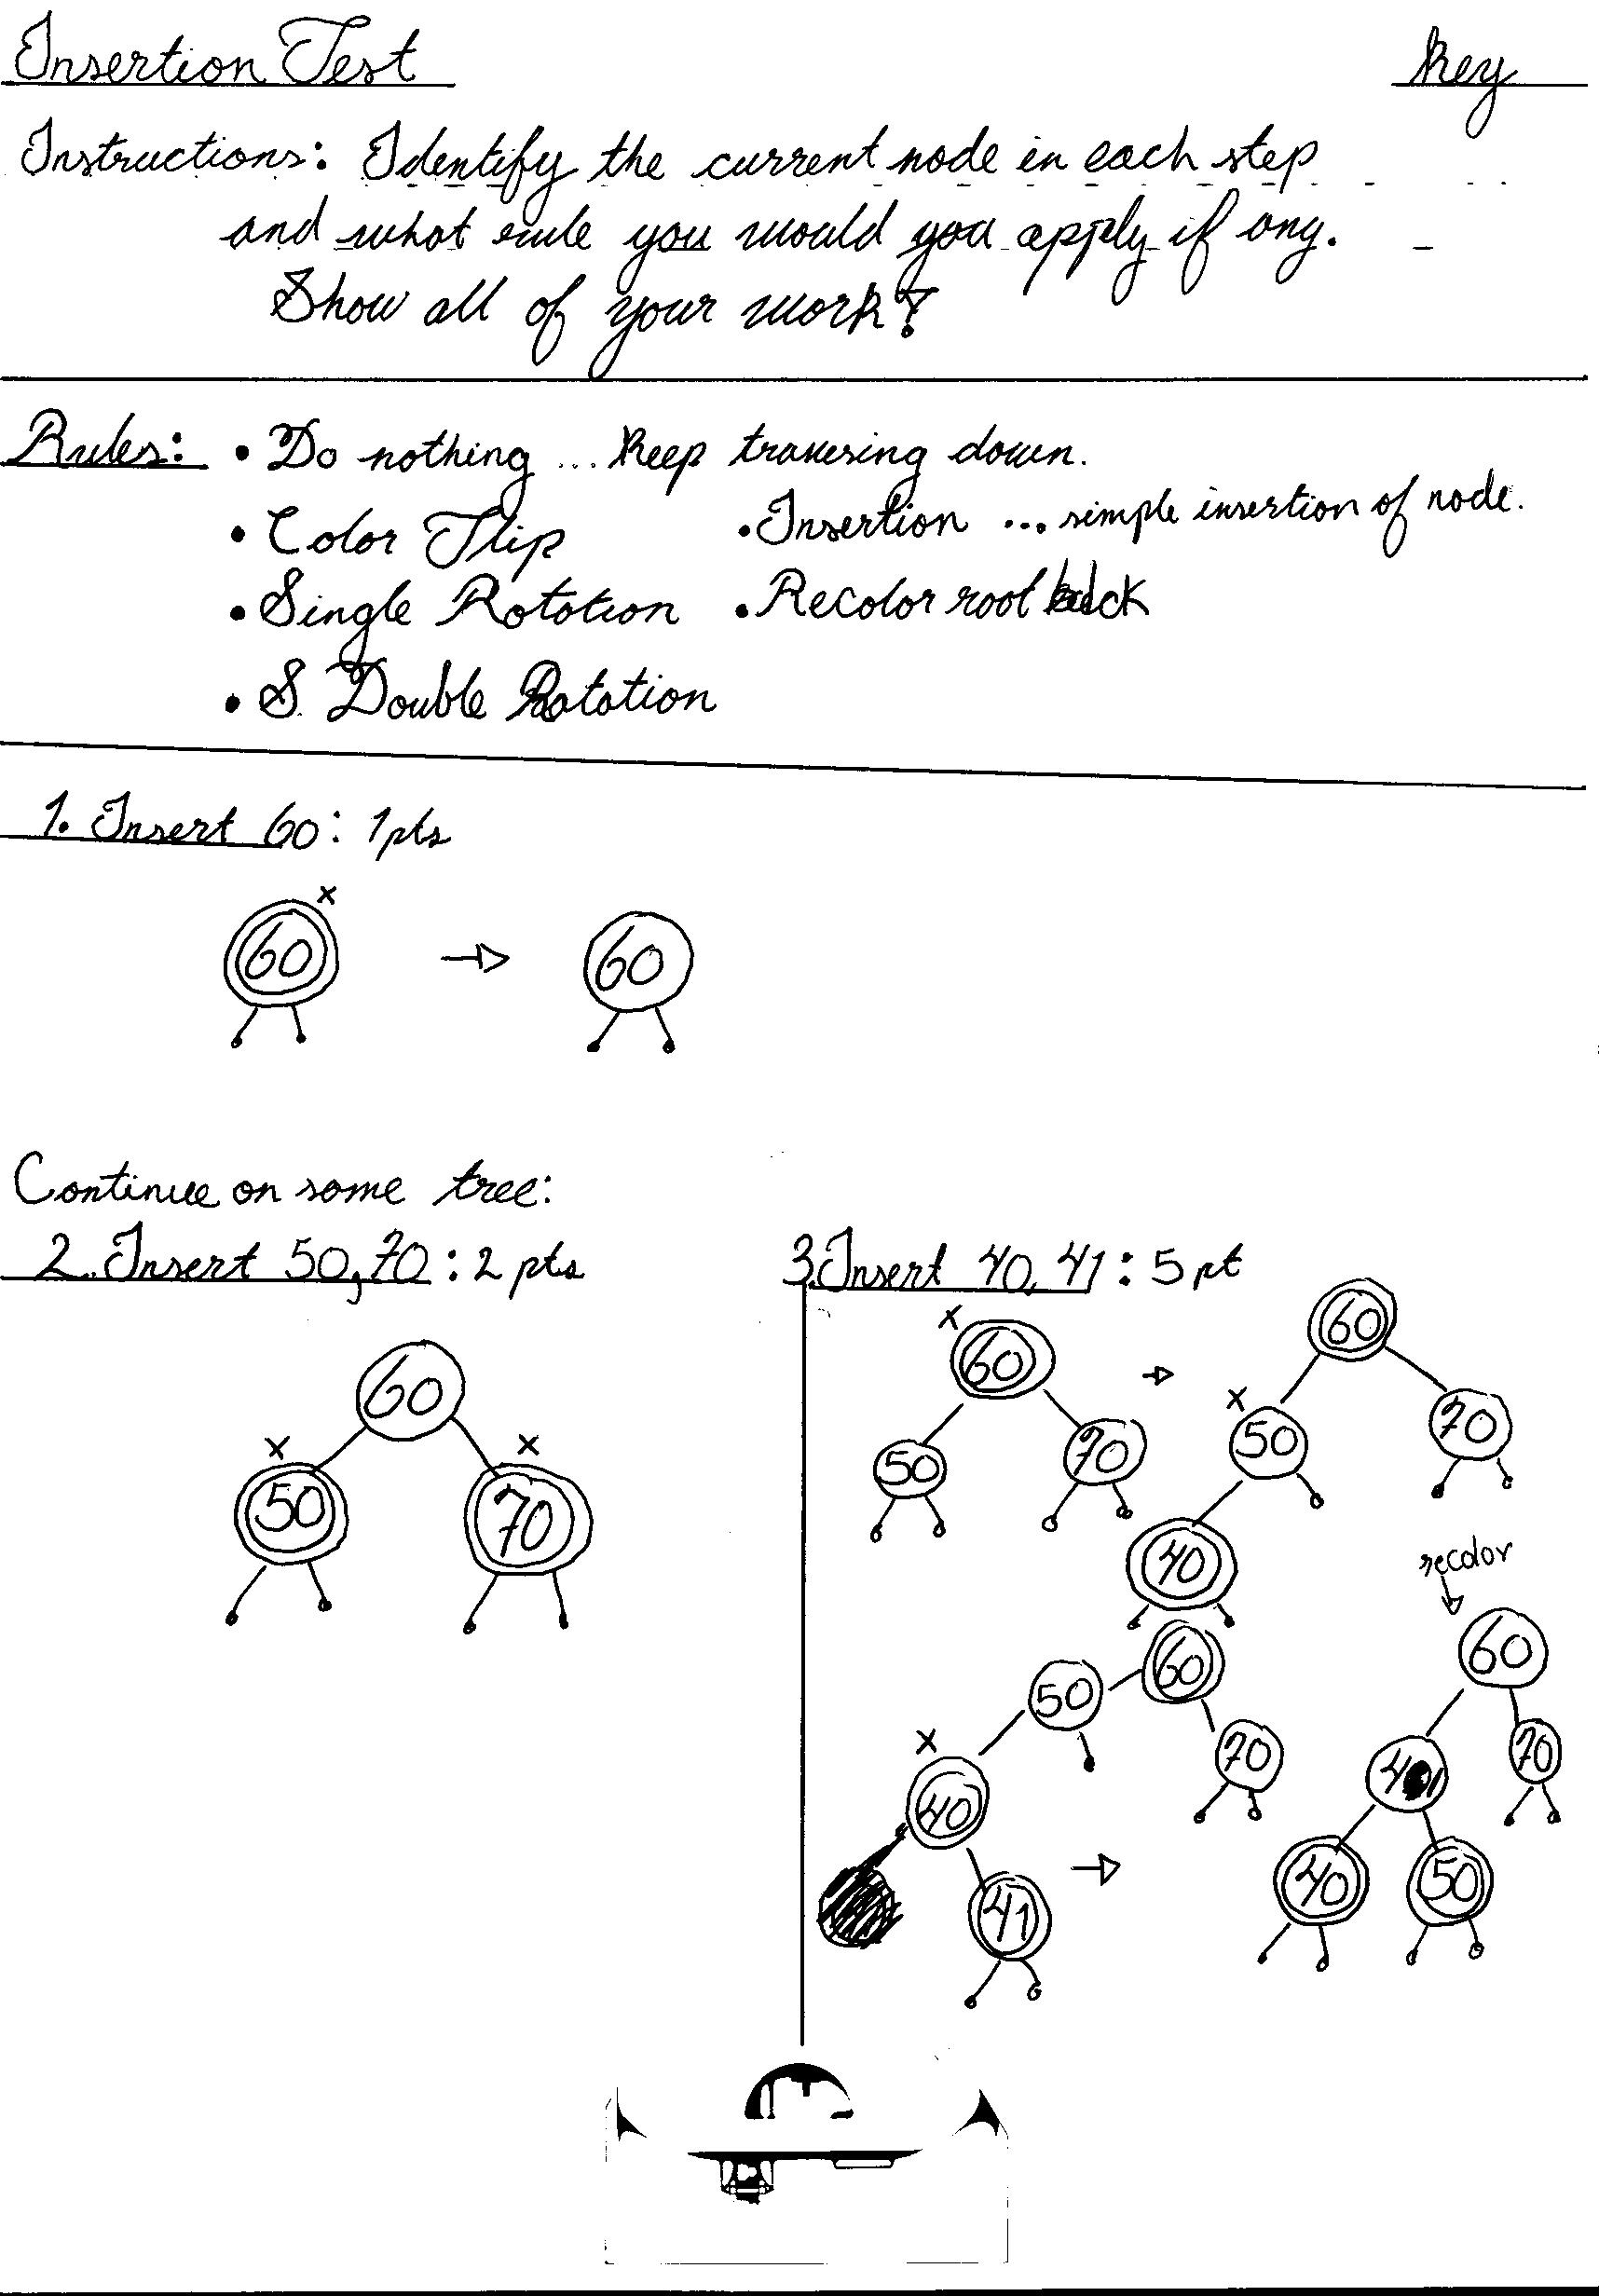 Insertion Test
Key
Instructions: Identify the current node in each step
and what rule you would you apply if any.
Show all of your work!
Rules: • Do nothing ... Keep traversing down.
• Color Flip
• Insertion ... simple insertion of node.
• Single Rotation
• Recolor root back
• S. Double Rotation
1. Insert 60: 1pts
x
60 → 60
Continue on same tree:
2. Insert 50,70: 2 pts
60
x x
50 70
3. Insert 40, 41: 5pt
x 60 → 60
50 70 x 50 70
40
recolor
50 60 60
x 70 41 70
40 40 50
41 →